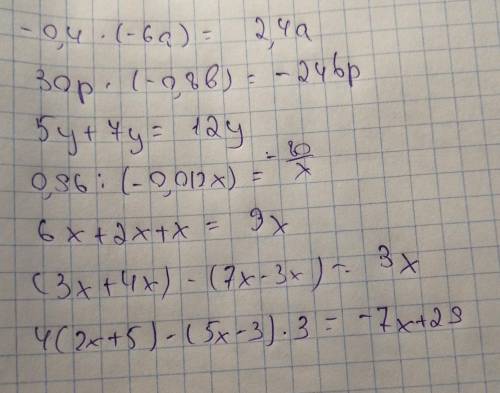 -0,4 · (-6a) = 2,4a
30p · (-0,8b) = -24bp
5y + 7y = 12y
0,96 : (-0,012x) = -80/x
6x + 2x + x = 9x
(3x + 4x) - (7x - 3x) = 3x
4(2x + 5) - (5x - 3) · 3 = -7x + 29